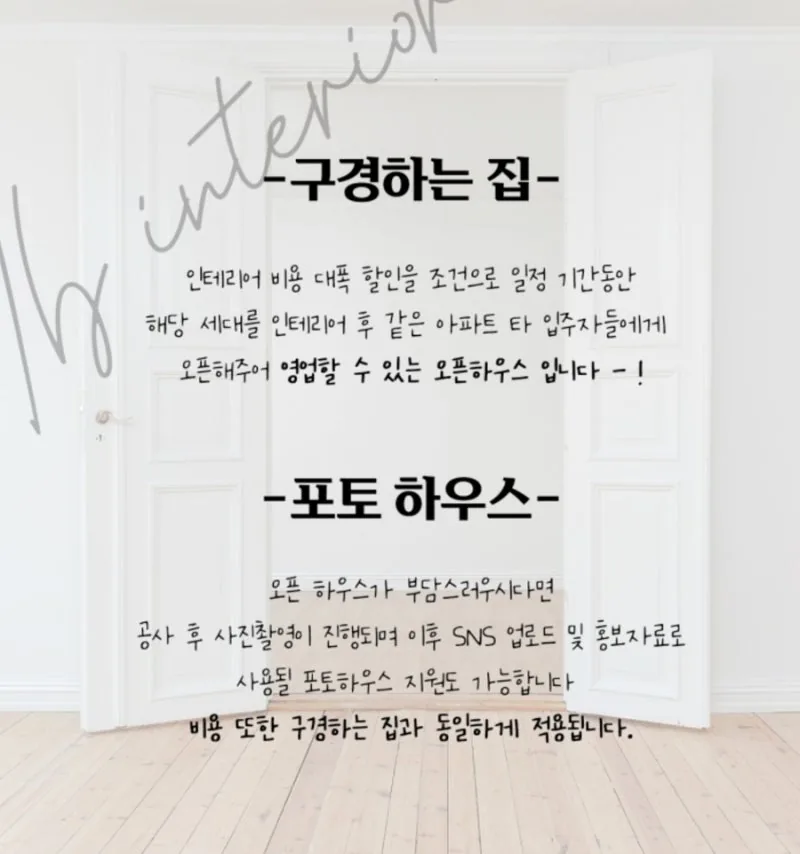 lb interior
-구경하는 집-
인테리어 비용 대폭 할인을 조건으로 일정 기간동안
해당 세대를 인테리어 후 같은 아파트 타 입주자들에게
오픈해주어 영업할 수 있는 오픈하우스 입니다 - !
-포토 하우스-
오픈 하우스가 부담스러우시다면
공사 후 사진촬영이 진행되며 이후 SNS 업로드 및 홍보자료로
사용될 포토하우스 지원도 가능합니다
비용 또한 구경하는 집과 동일하게 적용됩니다.